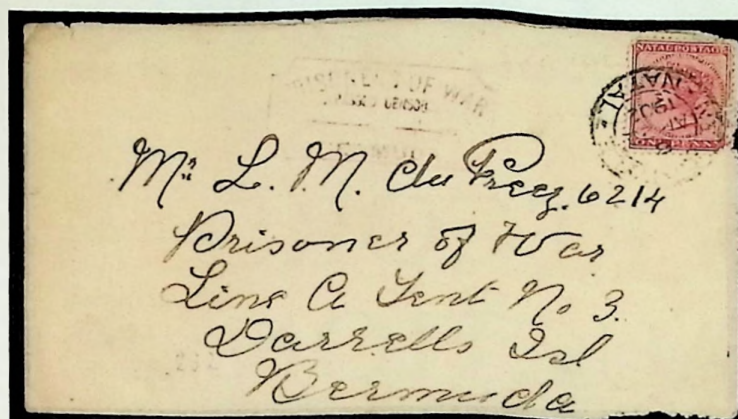 NATAL POSTAGE
NATAL
ONE PENNY
OF WAR
Mr L. M. du Preez. 6214
Prisoner of War
Line A Tent No 3.
Darrells Isl
Bermuda